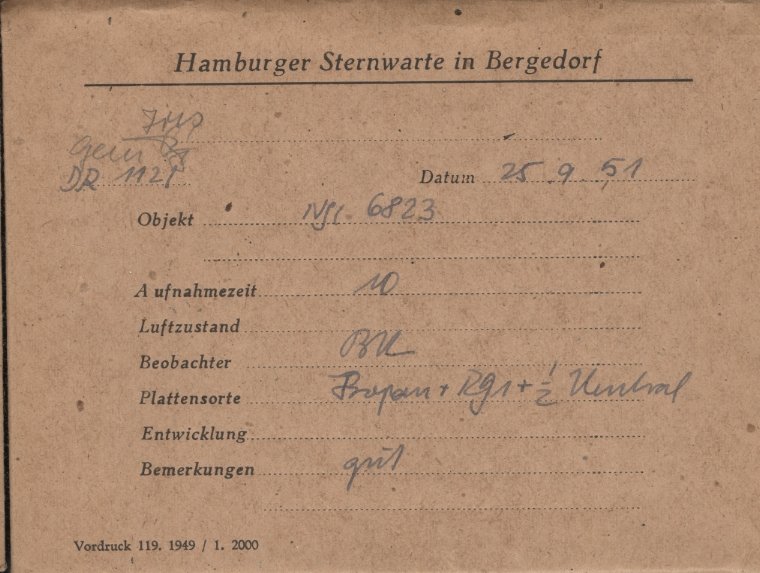 Hamburger Sternwarte in Bergedorf
DR 1121
Datum 25.9.51
Objekt NGC. 6823
Aufnahmezeit 10
Luftzustand
Beobachter
Plattensorte + RG1 + 1/2
Entwicklung
Bemerkungen gut
Vordruck 119. 1949 / 1. 2000